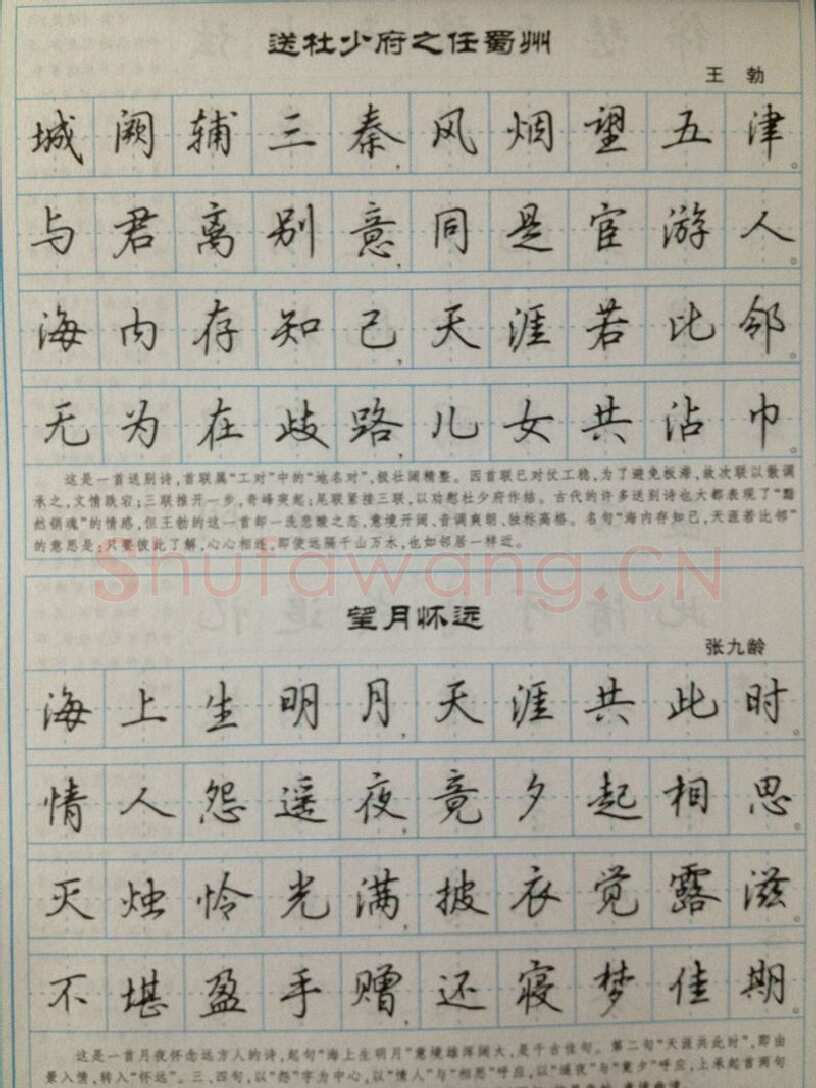 送杜少府之任蜀州
王 勃
城阙辅三秦,风烟望五津。
与君离别意,同是宦游人。
海内存知己,天涯若比邻。
无为在歧路,儿女共沾巾
这是一首送别诗,首联属“工对”中的“地名对”,极壮阔精整。因首联已对仗工稳,为了避免板滞,故次联以散调
承之,文情跌宕;三联推开一步,奇峰突起;尾联紧接三联,以劝慰杜少府作结。古代的许多送别诗也大都表现了“黯
然销魂”的情感,但王勃的这一首却一洗悲酸之态,意境开阔、音调爽朗、独标高格。名句“海内存知己,天涯若比邻”
的意思是:只要彼此了解,心心相连,即使远隔千山万水,也如邻居一样近。
Shufawang.CN
望月怀远
张九龄
海上生明月,天涯共此时。
情人怨遥夜,竟夕起相思。
灭烛怜光满,披衣觉露滋。
不堪盈手赠,还寝梦佳期。
这是一首月夜怀念远方人的诗,起句“海上生明月”意境雄浑阔大,是千古佳句。第二句“天涯共此时”,即由
景入情,转入“怀远”。三、四句,以“怨”字为中心,以“情人”与“相思”呼应,以“遥夜”与“竟夕”呼应,上承起首两句